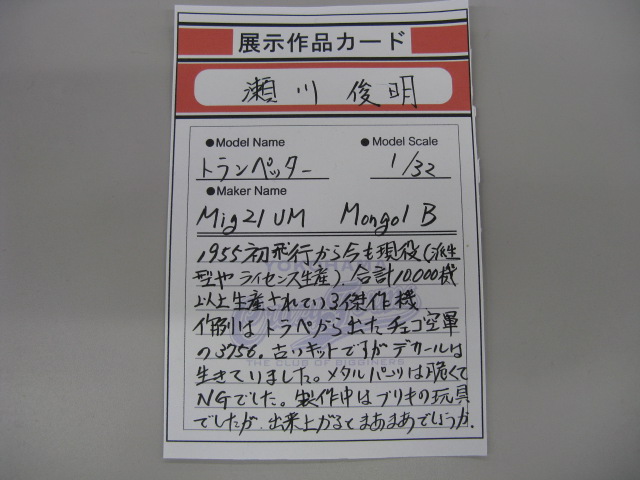 展示作品カード
瀬川 俊明
●Model Name ●Model Scale
トランペッター 1/32
●Maker Name
Mig21UM Mongol B
1955初飛行から今も現役(派生
型やライセンス生産)合計10,000機
以上生産されている傑作機
作例はトラペから出たチェコ空軍
の3756。古いキットですがデカールは
生きていました。メタルパーツは脆くて
NGでした。製作中はブリキの玩具
でしたが、出来上がるとまあまあでしょうか。
THE CLUB OF